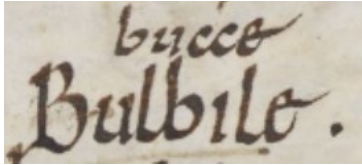 bucce
Bulbile.